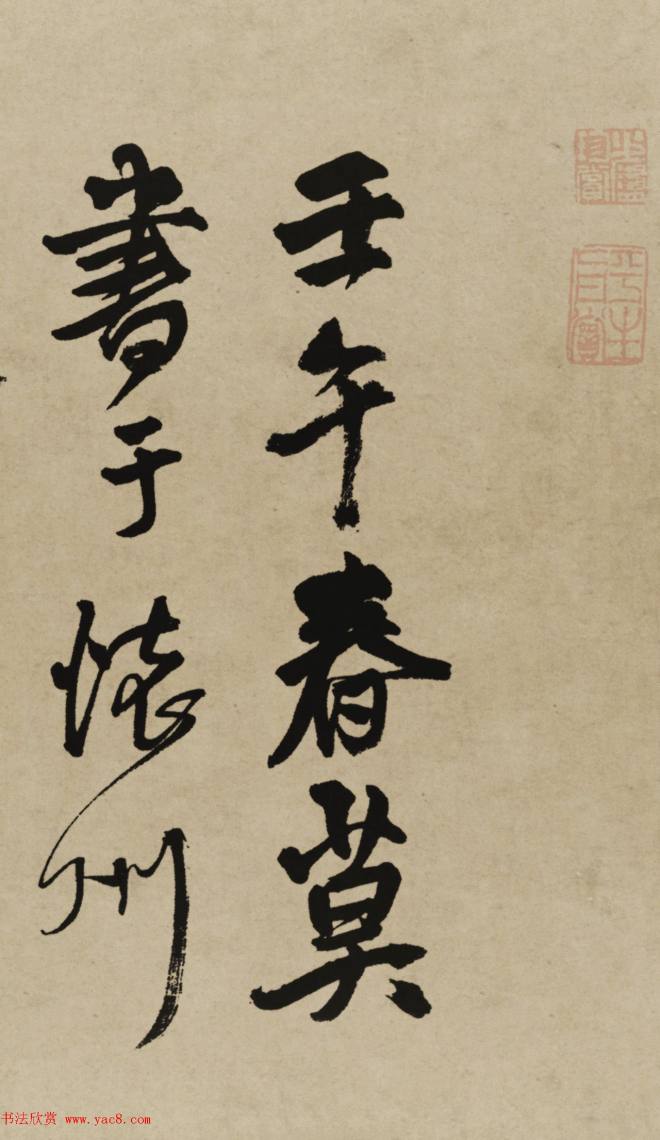 壬午春莫
書于懐州
书法欣赏 www.yac8.com